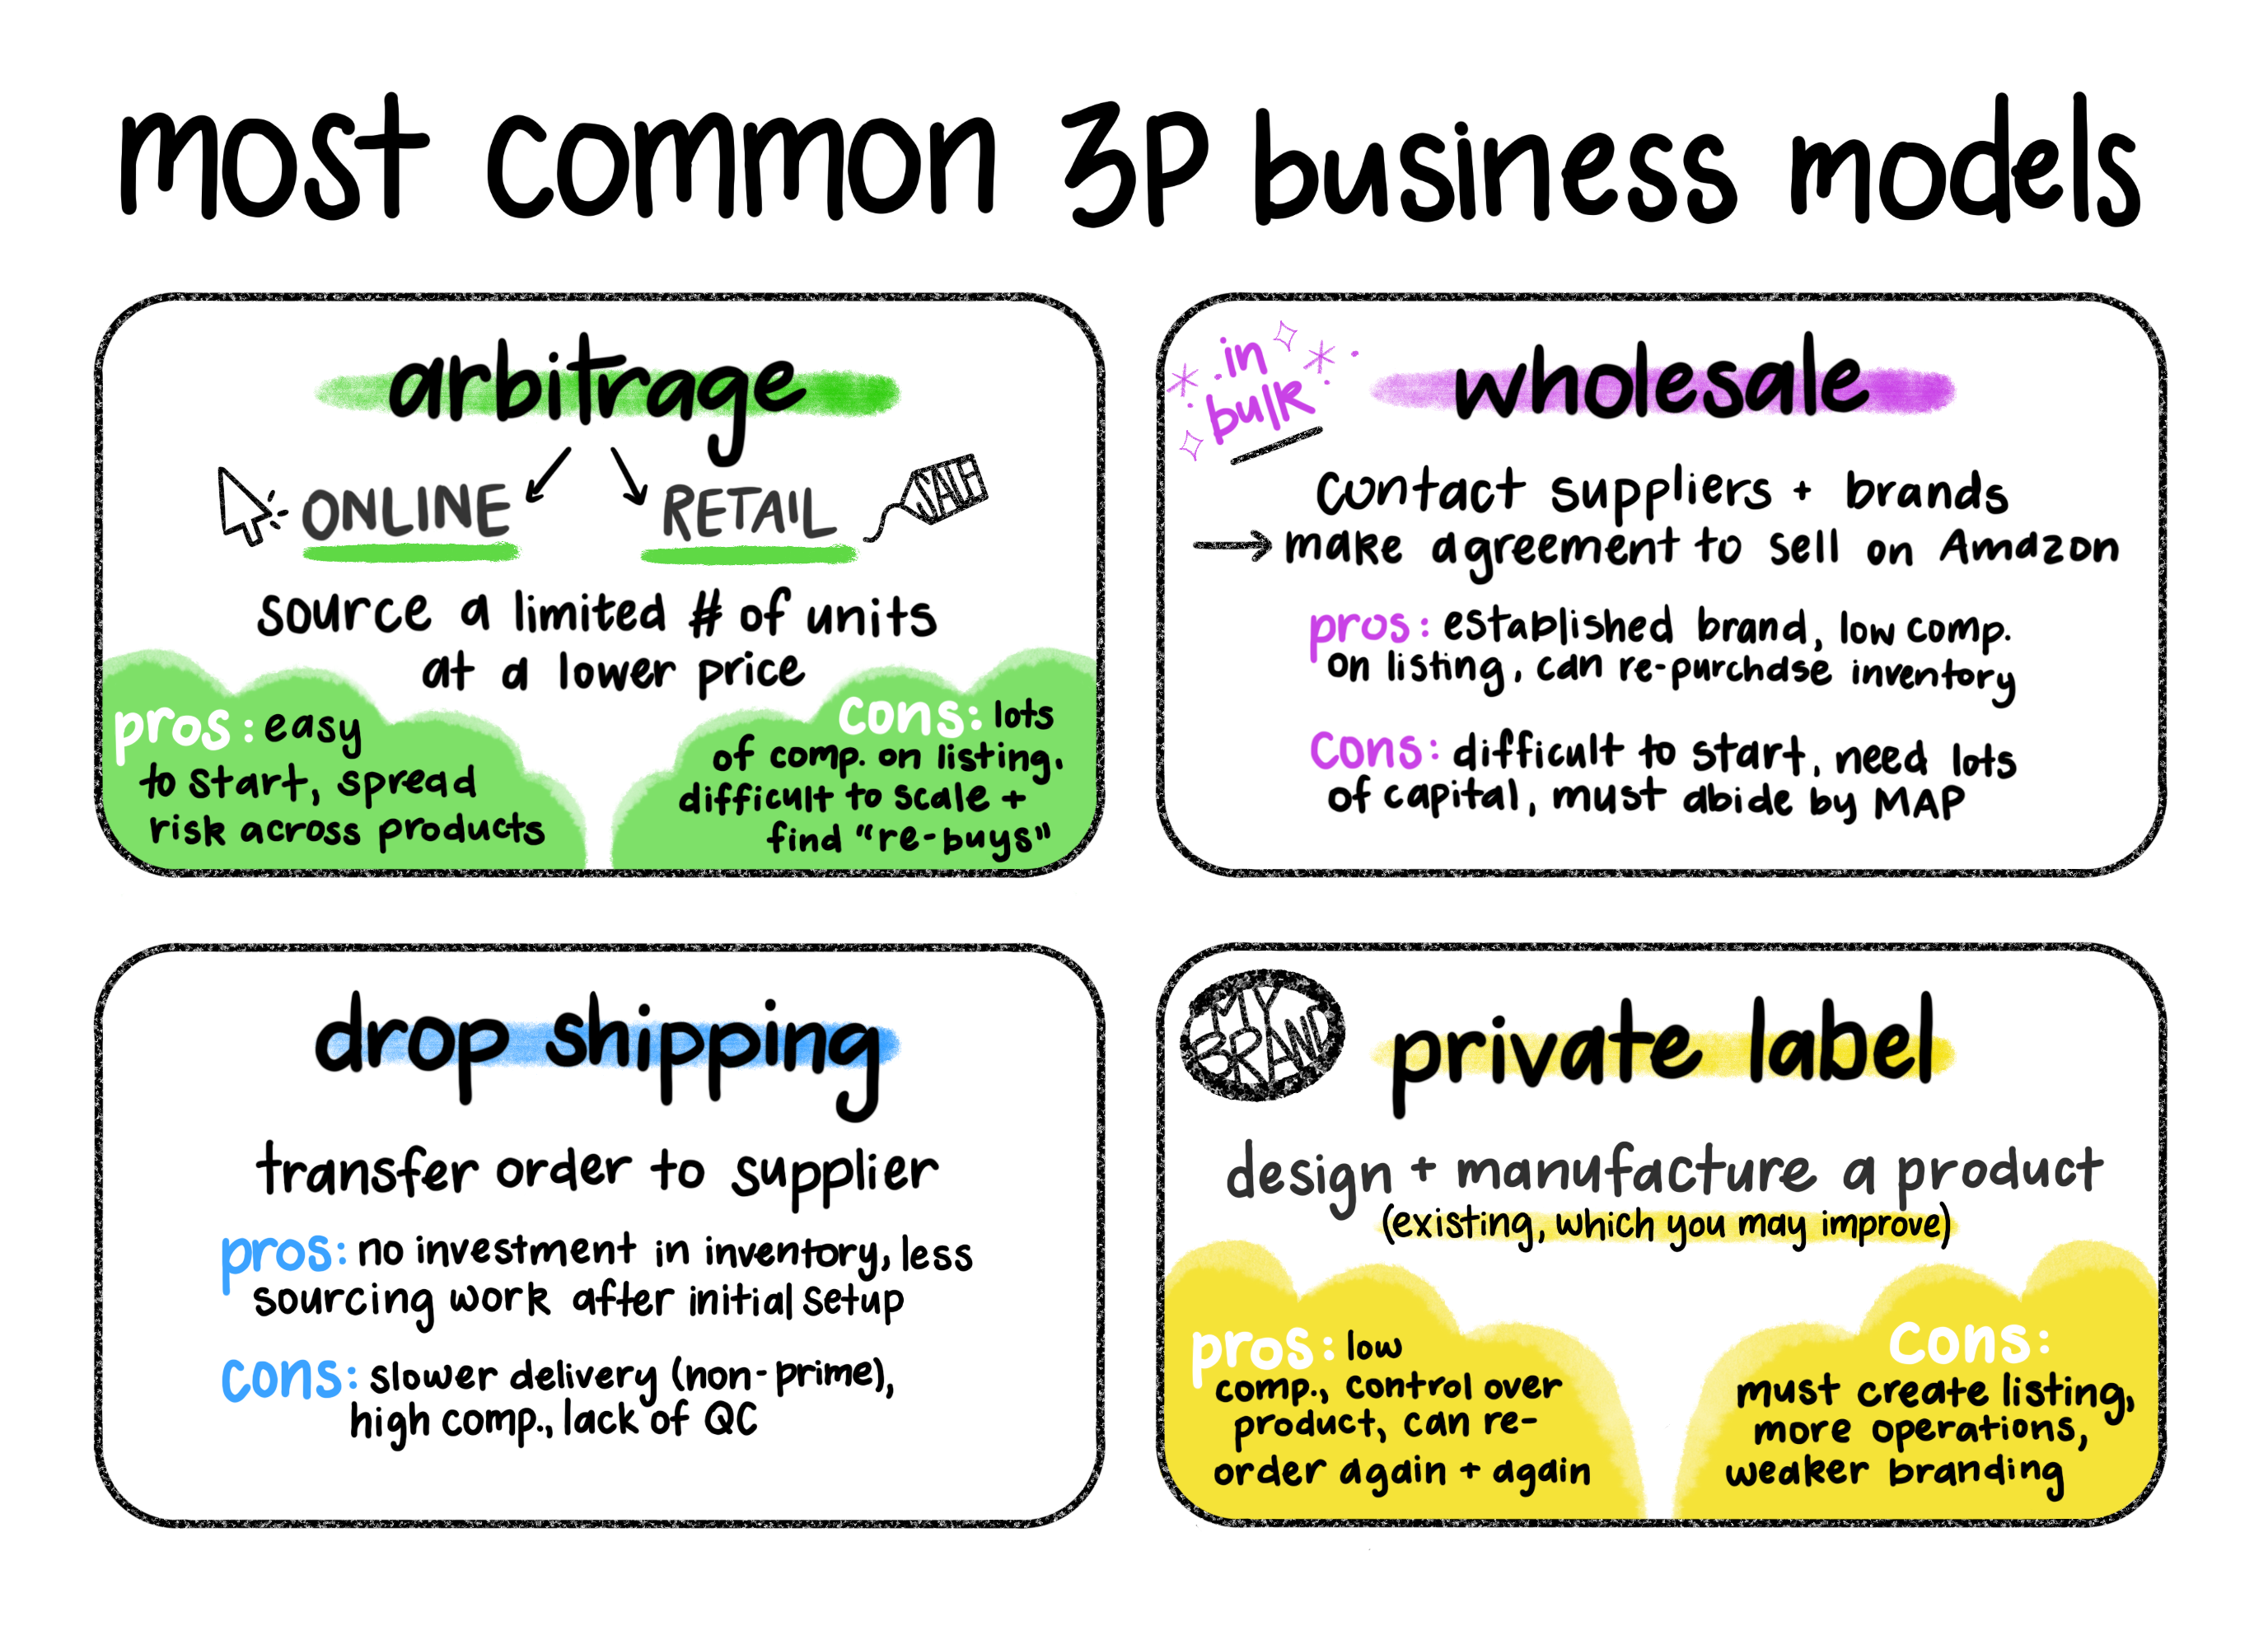 most common 3P business models
arbitrage
ONLINE
RETAIL
SALE
source a limited # of units
at a lower price
pros: easy
to start, spread
risk across products
cons: lots
of comp. on listing,
difficult to scale +
find "re-buys"
in
bulk
wholesale
contact suppliers + brands
→ make agreement to sell on Amazon
pros: established brand, low comp.
on listing, can re-purchase inventory
cons: difficult to start, need lots
of capital, must abide by MAP
drop shipping
transfer order to supplier
pros: no investment in inventory, less
sourcing work after initial setup
cons: slower delivery (non-prime),
high comp., lack of QC
MY
BRAND
private label
design + manufacture a product
(existing, which you may improve)
pros: low
comp., control over
product, can re-
order again + again
cons:
must create listing,
more operations,
weaker branding